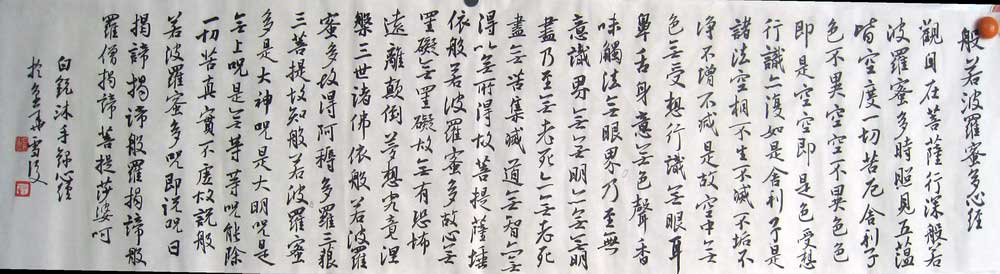 般若波羅蜜多心經
觀自在菩薩行深般若
波羅蜜多時照見五蕴
皆空度一切苦厄舍利子
色不異空空不異色色
即是空空即是色受想
行識亦復如是舍利子是
諸法空相不生不滅不垢不
净不增不减是故空中無
色無受想行識無眼耳
鼻舌身意無色聲香
味觸法無眼界乃至無
意識界無無明亦無無明
盡乃至無老死亦無老死
盡無苦集滅道無智亦無
得以無所得故菩提薩埵
依般若波羅蜜多故心無
罣礙無罣礙故無有恐怖
遠離顛倒夢想究竟涅
槃三世諸佛依般若波羅
蜜多故得阿耨多羅三藐
三菩提故知般若波羅蜜
多是大神咒是大明咒是
無上咒是無等等咒能除
一切苦真實不虛故說般
若波羅蜜多咒即說咒曰
揭諦揭諦般羅揭諦般
羅僧揭諦菩提莎婆呵
白銳沐手録心經
於雪後